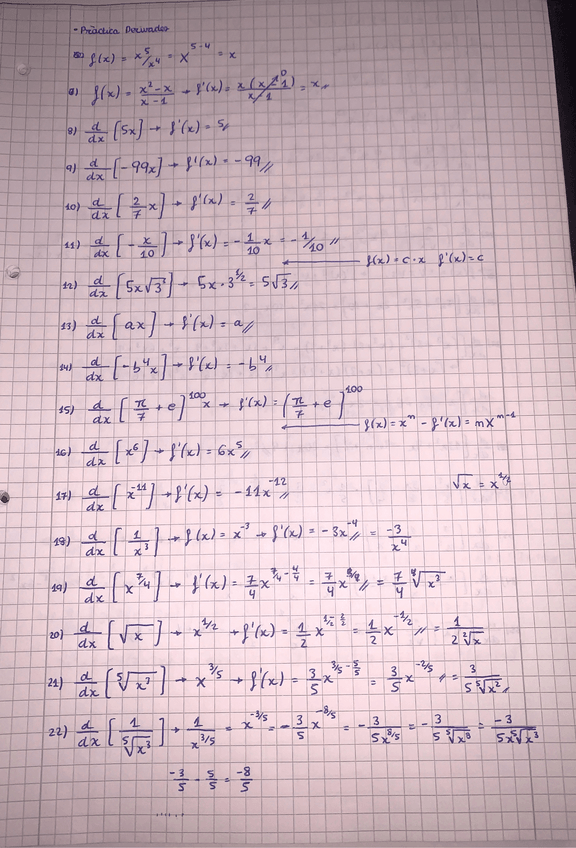 - Práctica Derivadas
f(x) = x⁵/x⁴ = x⁵⁻⁴ = x
6) f(x) = (x² - x)/(x - 1) → f'(x) = x(x - 1)/(x - 1) = x //
8) d/dx [5x] → f'(x) = 5 //
9) d/dx [-99x] → f'(x) = -99 //
10) d/dx [2/7 x] → f'(x) = 2/7 //
11) d/dx [-x/10] → f'(x) = -1/10 x = -1/10 //
← f(x) = c·x f'(x) = c
12) d/dx [5x√3] → 5x · 3^(1/2) = 5√3 //
13) d/dx [ax] → f'(x) = a //
14) d/dx [-b⁴x] → f'(x) = -b⁴ //
15) d/dx [π/7 + e]¹⁰⁰ x → f'(x) = [π/7 + e]¹⁰⁰
← f(x) = xⁿ - f'(x) = nxⁿ⁻¹
16) d/dx [x⁶] → f'(x) = 6x⁵ //
17) d/dx [x⁻¹¹] → f'(x) = -11x⁻¹² // √x = x^(1/2)
18) d/dx [1/x³] → f(x) = x⁻³ → f'(x) = -3x⁻⁴ // = -3/x⁴
19) d/dx [x^(7/4)] → f'(x) = 7/4 x^(7/4 - 4/4) = 7/4 x^(3/4) // = 7/4 ⁴√x³
20) d/dx [√x] → x^(1/2) → f'(x) = 1/2 x^(1/2 - 2/2) = 1/2 x^(-1/2) // = 1/(2 ²√x)
21) d/dx [⁵√x³] → x^(3/5) → f'(x) = 3/5 x^(3/5 - 5/5) = 3/5 x^(-2/5) // = 3/(5 ⁵√x²) //
22) d/dx [1/⁵√x³] → 1/x^(3/5) = x^(-3/5) = -3/5 x^(-8/5) = -3/(5x^(8/5)) = -3/(5 ⁵√x⁸) = -3/(5x ⁵√x³)
-3/5 - 5/5 = -8/5